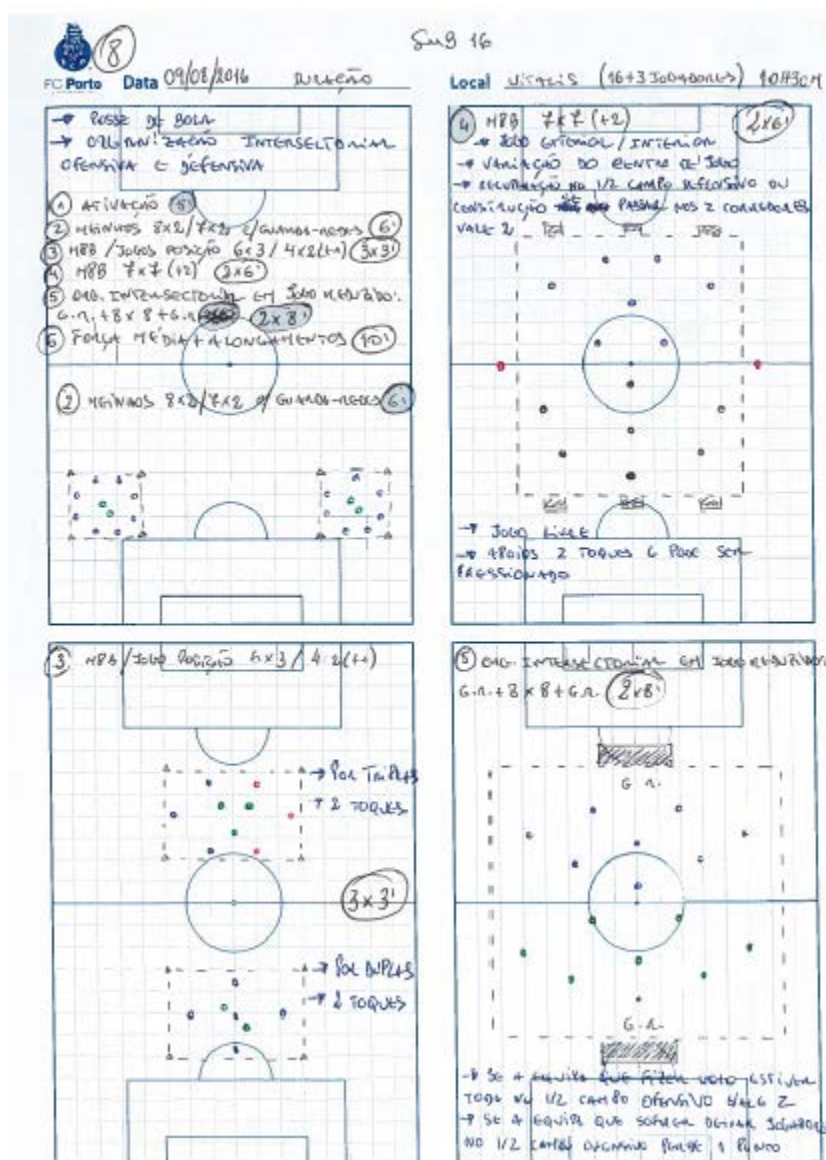 8
Sub 16
FC Porto Data 09/08/2016 DURAÇÃO
Local VITALIS (16+3 JOGADORES)
→ POSSE DE BOLA
→ ORGANIZAÇÃO INTERSECTORIAL
OFENSIVA E DEFENSIVA
1 ATIVAÇÃO 5'
2 MEINHOS 8x2/7x2 C/GUARDA-REDES 6'
3 MPB /JOGOS POSIÇÃO 6x3 / 4x2(+1) 3x3'
4 MPB 7x7 (+2) 2x6'
5 ORG. INTERSECTORIAL EM JOGO REDUZIDO:
G.R.+8x8+G.R. 2x8'
6 FORÇA MÉDIA + ALONGAMENTOS 10'
2 MEINHOS 8x2/7x2 C/ GUARDA-REDES 6'
4 MPB 7x7 (+2) 2x6'
→ JOGO EXTERIOR / INTERIOR
→ VARIAÇÃO DO CENTRO DE JOGO
→ RECUPERAÇÃO NO 1/2 CAMPO DEFENSIVO OU
CONSTRUÇÃO PASSAR NOS 2 CORREDORES
VALE 2
→ JOGO LIVRE
→ APOIOS 2 TOQUES E PODE SER
PRESSIONADO
3 MPB/JOGO POSIÇÃO 6x3 / 4 2(+1)
→ POR TRIPLAS
→ 2 TOQUES
3x3'
→ POR DUPLAS
→ 2 TOQUES
5 ORG. INTERSECTORIAL EM JOGO REDUZIDO
G.R.+8x8+G.R. 2x8'
G.R.
G.R.
→ SE A EQUIPA QUE FIZER GOLO ESTIVER
TODA NO 1/2 CAMPO OFENSIVO VALE 2
→ SE A EQUIPA QUE SOFRER DEIXAR JOGADORES
NO 1/2 CAMPO OFENSIVO PERDE 1 PONTO